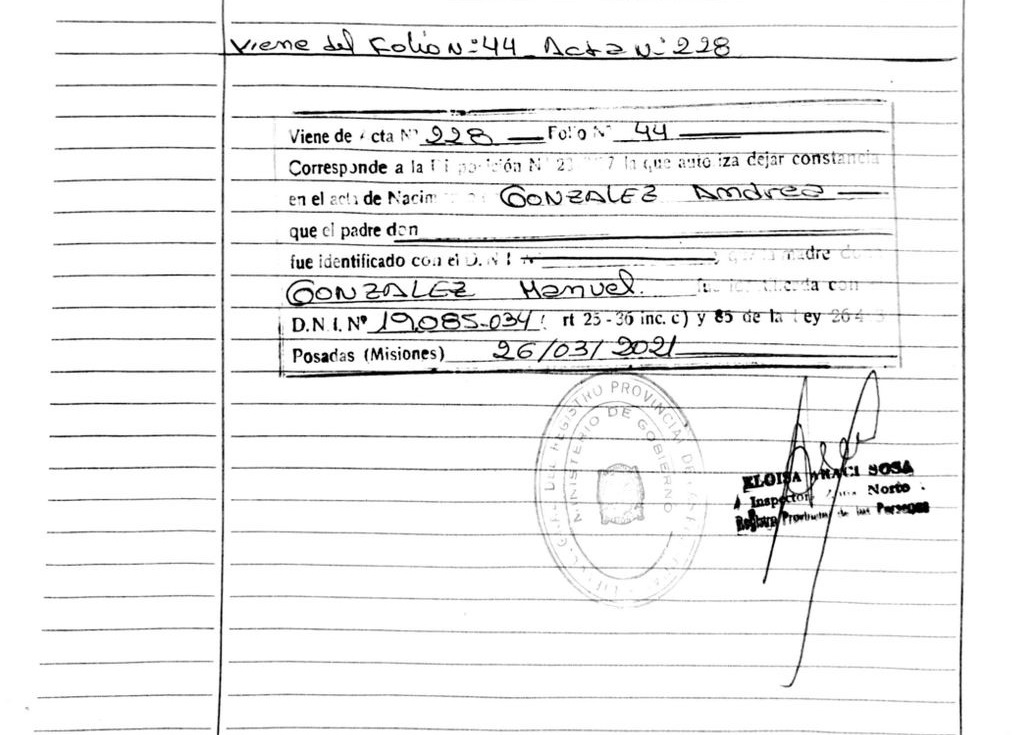 Viene del Folio Nº 44 Acta Nº 228
Viene de Acta Nº 228 Folio Nº 44
Corresponde a la Disposición Nº la que autoriza dejar constancia
en el acta de GONZALEZ Andrea
que el padre don
fue identificado con el D.N.I. Nº y que la madre
GONZALEZ Manuel. con
D.N.I. Nº 19.085.034 rt 25-36 inc. c) y 85 de la Ley
Posadas (Misiones) 26/03/2021
REGISTRO PROVINCIAL DE
MINISTERIO DE GOBIERNO
ELOISA ARACI SOSA
Inspector Zona Norte
Registro Provincial de las Personas